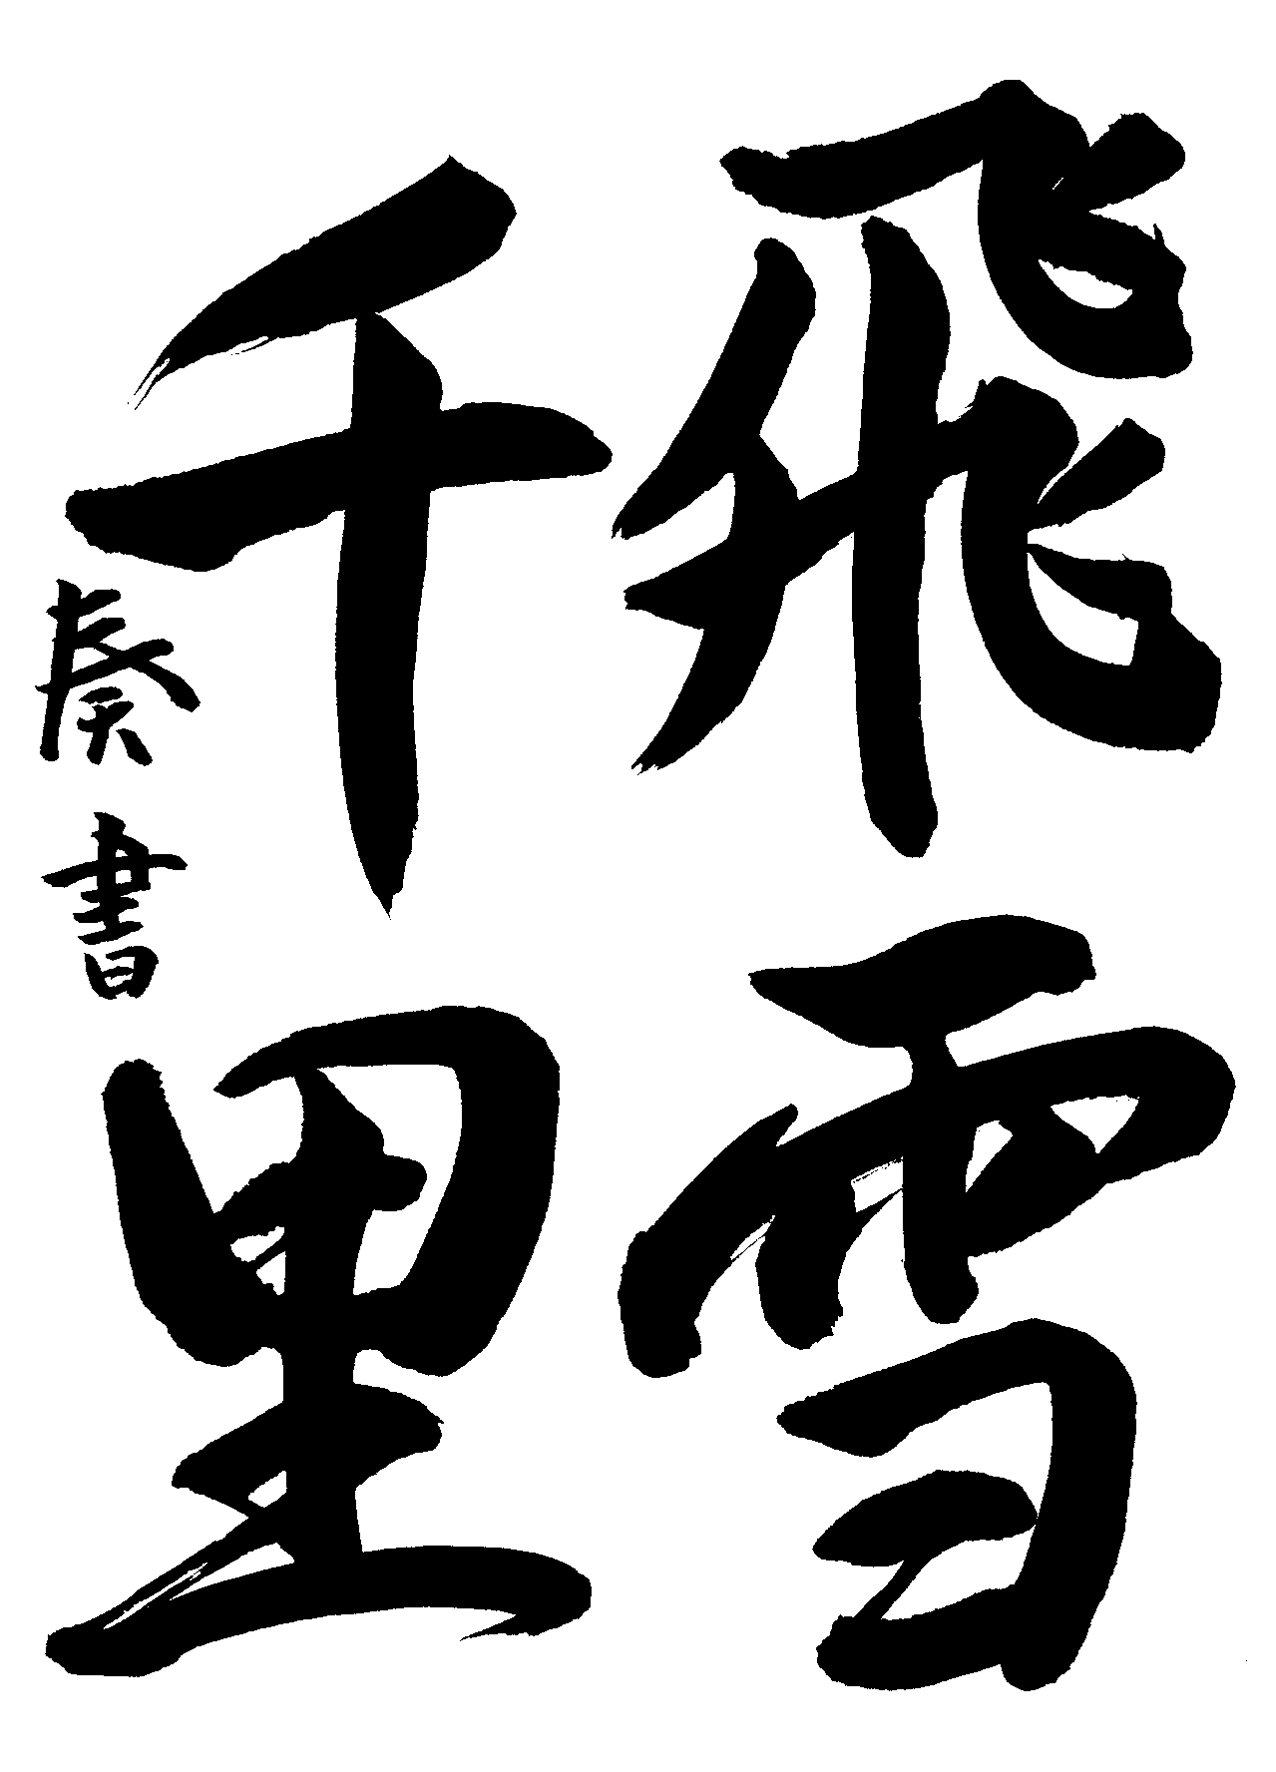 飛雪
千里
奏書